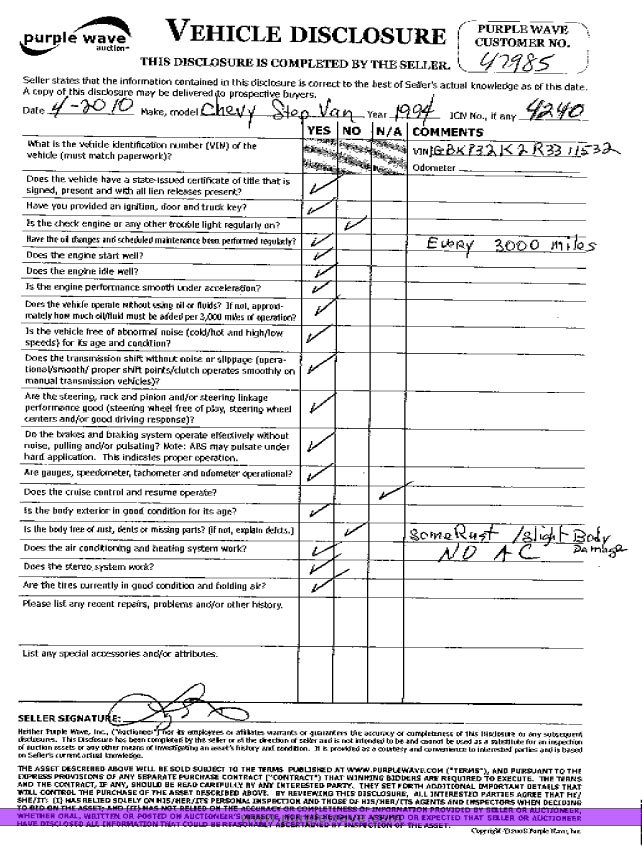 purple wave
auction
VEHICLE DISCLOSURE
THIS DISCLOSURE IS COMPLETED BY THE SELLER.
PURPLE WAVE
CUSTOMER NO.
47985
Seller states that the information contained in this disclosure is correct to the best of Seller's actual knowledge as of this date.
A copy of this disclosure may be delivered to prospective buyers.
Date 4-2010 Make, model Chevy Step Van Year 1994 ICN No., if any 4240
YES NO N/A COMMENTS
What is the vehicle identification number (VIN) of the
vehicle (must match paperwork)?
VIN 1GBKP32K2R3311532
Odometer
Does the vehicle have a state-issued certificate of title that is
signed, present and with all lien releases present?
Have you provided an ignition, door and truck key?
Is the check engine or any other trouble light regularly on?
Have the oil changes and scheduled maintenance been performed regularly? Every 3000 miles
Does the engine start well?
Does the engine idle well?
Is the engine performance smooth under acceleration?
Does the vehicle operate without using oil or fluids? If not, approxi-
mately how much oil/fluid must be added per 3,000 miles of operation?
Is the vehicle free of abnormal noise (cold/hot and high/low
speeds) for its age and condition?
Does the transmission shift without noise or slippage (opera-
tional/smooth/ proper shift points/clutch operates smoothly on
manual transmission vehicles)?
Are the steering, rack and pinion and/or steering linkage
performance good (steering wheel free of play, steering wheel
centers and/or good driving response)?
Do the brakes and braking system operate effectively without
noise, pulling and/or pulsating? Note: ABS may pulsate under
hard application. This indicates proper operation.
Are gauges, speedometer, tachometer and odometer operational?
Does the cruise control and resume operate?
Is the body exterior in good condition for its age?
Is the body free of rust, dents or missing parts? (if not, explain defects.) Some Rust / Slight Body Damage
Does the air conditioning and heating system work? NO AC
Does the stereo system work?
Are the tires currently in good condition and holding air?
Please list any recent repairs, problems and/or other history.
List any special accessories and/or attributes.
SELLER SIGNATURE:
Neither Purple Wave, Inc., ("Auctioneer") nor its employees or affiliates warrants or guarantees the accuracy or completeness of this Disclosure or any subsequent
disclosures. This Disclosure has been completed by the seller or at the direction of seller and is not intended to be and cannot be used as a substitute for an inspection
of auction assets or any other means of investigating an asset's history and condition. It is provided as a courtesy and convenience to interested parties and is based
on Seller's current actual knowledge.
THE ASSET DESCRIBED ABOVE WILL BE SOLD SUBJECT TO THE TERMS PUBLISHED AT WWW.PURPLEWAVE.COM ("TERMS"), AND PURSUANT TO THE
EXPRESS PROVISIONS OF ANY SEPARATE PURCHASE CONTRACT ("CONTRACT") THAT WINNING BIDDERS ARE REQUIRED TO EXECUTE. THE TERMS
AND THE CONTRACT, IF ANY, SHOULD BE READ CAREFULLY BY ANY INTERESTED PARTY. THEY SET FORTH ADDITIONAL IMPORTANT DETAILS THAT
WILL CONTROL THE PURCHASE OF THE ASSET DESCRIBED ABOVE. BY REVIEWING THIS DISCLOSURE, ALL INTERESTED PARTIES AGREE THAT HE/
SHE/IT: (I) HAS RELIED SOLELY ON HIS/HER/ITS PERSONAL INSPECTION AND THOSE OF HIS/HER/ITS AGENTS AND INSPECTORS WHEN DECIDING
TO BID ON THE ASSET; AND (II) HAS NOT RELIED ON THE ACCURACY OR COMPLETENESS OF INFORMATION PROVIDED BY SELLER OR AUCTIONEER
WHETHER ORAL, WRITTEN OR POSTED ON AUCTIONEER'S WEBSITE, NOR HAS HE/SHE/IT ASSUMED OR EXPECTED THAT SELLER OR AUCTIONEER
HAVE DISCLOSED ALL INFORMATION THAT COULD BE REASONABLY ASCERTAINED BY INSPECTION OF THE ASSET.
Copyright ©2008 Purple Wave, Inc.